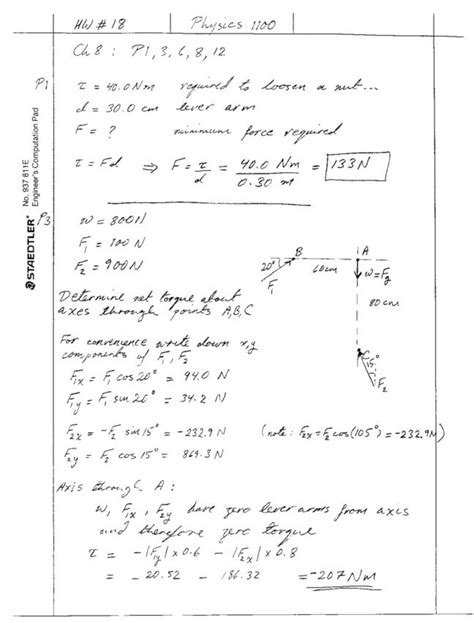 HW # 18 Physics 1100
Ch 8 : P1, 3, 6, 8, 12
P1 τ = 40.0 Nm required to loosen a nut...
d = 30.0 cm lever arm
F = ? minimum force required
τ = Fd ⇒ F = τ/d = 40.0 Nm / 0.30 m = 133 N
No. 937 811E
Engineer's Computation Pad
STAEDTLER®
P3 w = 800N
F₁ = 100 N
F₂ = 900N
B
A
20°
60cm
w = Fg
F₁
80 cm
C
15°
F₂
Determine net torque about
axes through points A,B,C
For convenience write down x,y
components of F₁, F₂
F₁ₓ = F₁ cos 20° = 94.0 N
F₁y = F₁ sin 20° = 34.2 N
F₂ₓ = -F₂ sin 15° = -232.9 N (note: F₂ₓ = F₂ cos(105°) = -232.9N)
F₂y = F₂ cos 15° = 869.3 N
Axis through A :
w, F₁ₓ, F₂y have zero lever arms from axis
and therefore zero torque
τ = -|F₁y| x 0.6 - |F₂ₓ| x 0.8
= -20.52 - 186.32 = -207 Nm